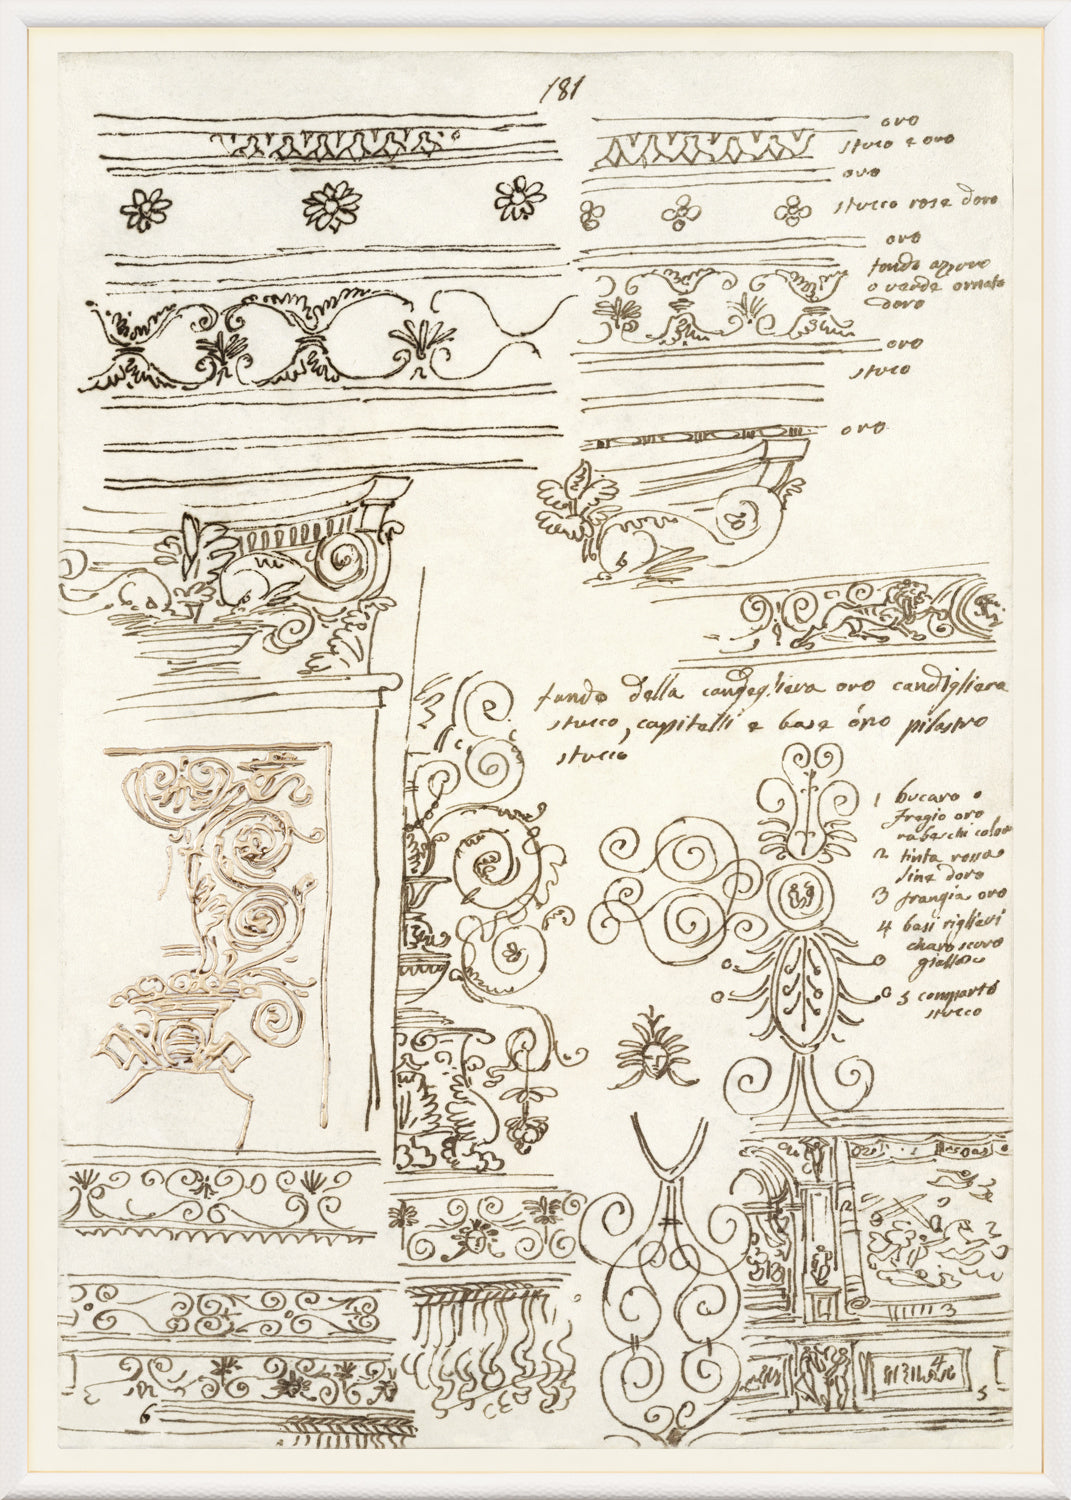 181
oro
stuco e oro
oro
stucco rose doro
oro
fondo azzuro
o verde ornato
doro
oro
stuco
oro
fondo della candegliera oro candigliera
stucco, capitelli e base óro pilastro
stucco
1 bucaro o
fregio oro
rabeschi color
2 tinta rossa
fine doro
3 frangia oro
4 basi riglievi
charo scuro
giallo
5 comparto
stucco
2
3
4
5
6